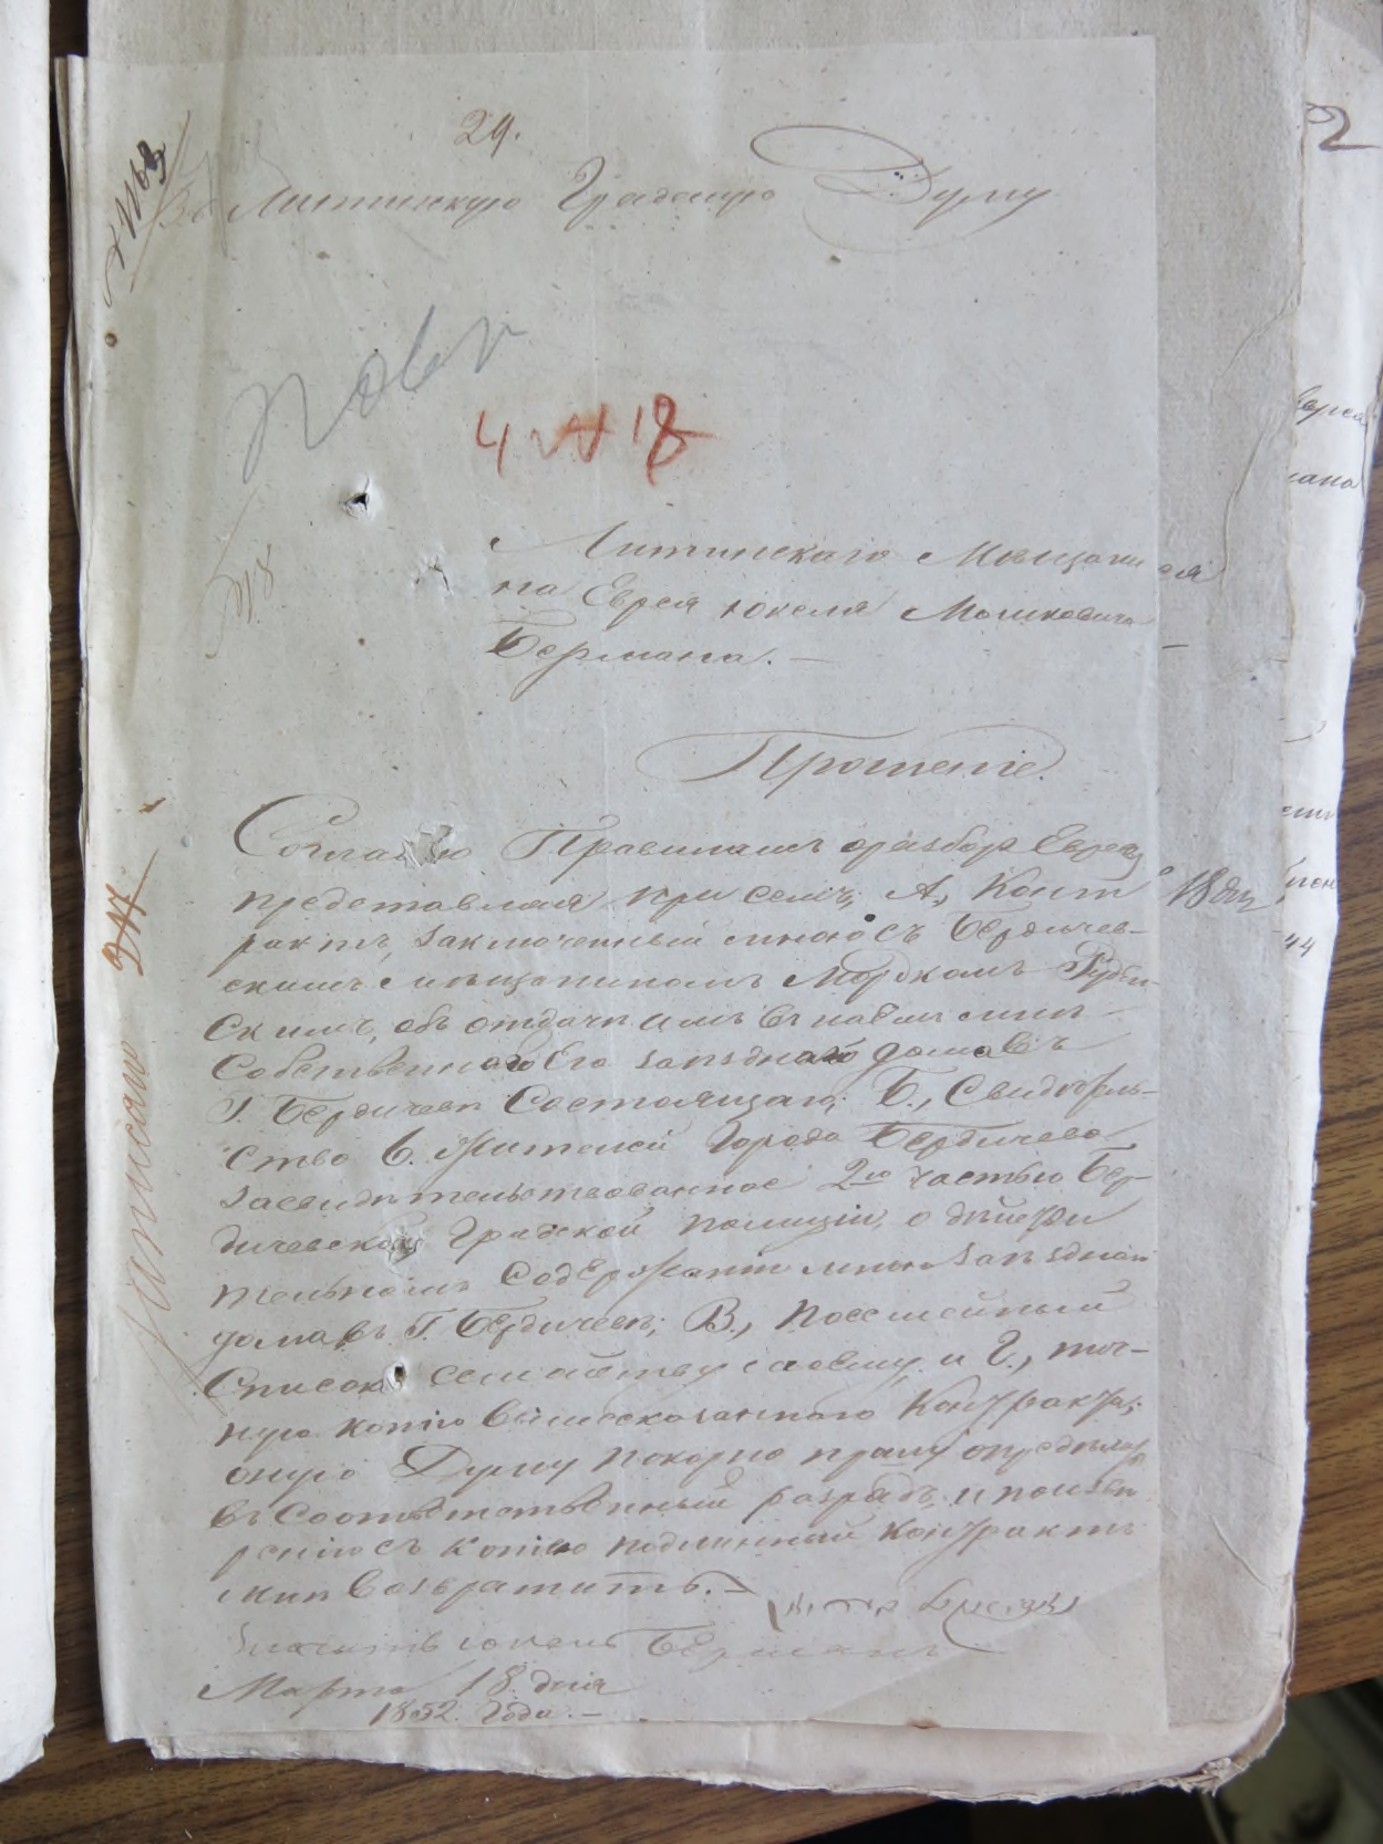 29.
Въ Литинскую Градскую Думу
4 № 18
Литинскаго Мѣщани
на Еврея Юкеля Мошковича
Бермана. —
Прошеніе.
Согласно Правиламъ о разборѣ Евреевъ
представляя при семъ, А., Конт
рактъ, заключенный мною съ Бердичев-
скимъ мѣщаниномъ Мордкомъ
скимъ, объ отдачи имъ въ наемъ мнѣ
Собственнаго Его заѣзднаго дома въ
Г. Бердичевѣ Состоящаго; Б., Свидѣтель-
ство 6. Жителей Города Бердичева
засвидѣтельствованное 2ю частью Бер-
дичевской Градской полиціи, о дѣйстви
тельномъ Содержаніи мною заѣздном
дома въ Г. Бердичевѣ; В., Посемейный
Списокъ семейству своему и Г., точ-
ную копію вышесказаннаго Контракта;
оную Думу покорно прошу опредѣлить
въ Соотвѣтственный разрядъ, и по
реніи съ копіею подлинный контрактъ
мнѣ Возвратить. —
Юкель Берманъ
Марта 18 дня
1852. Года. —
18 дня